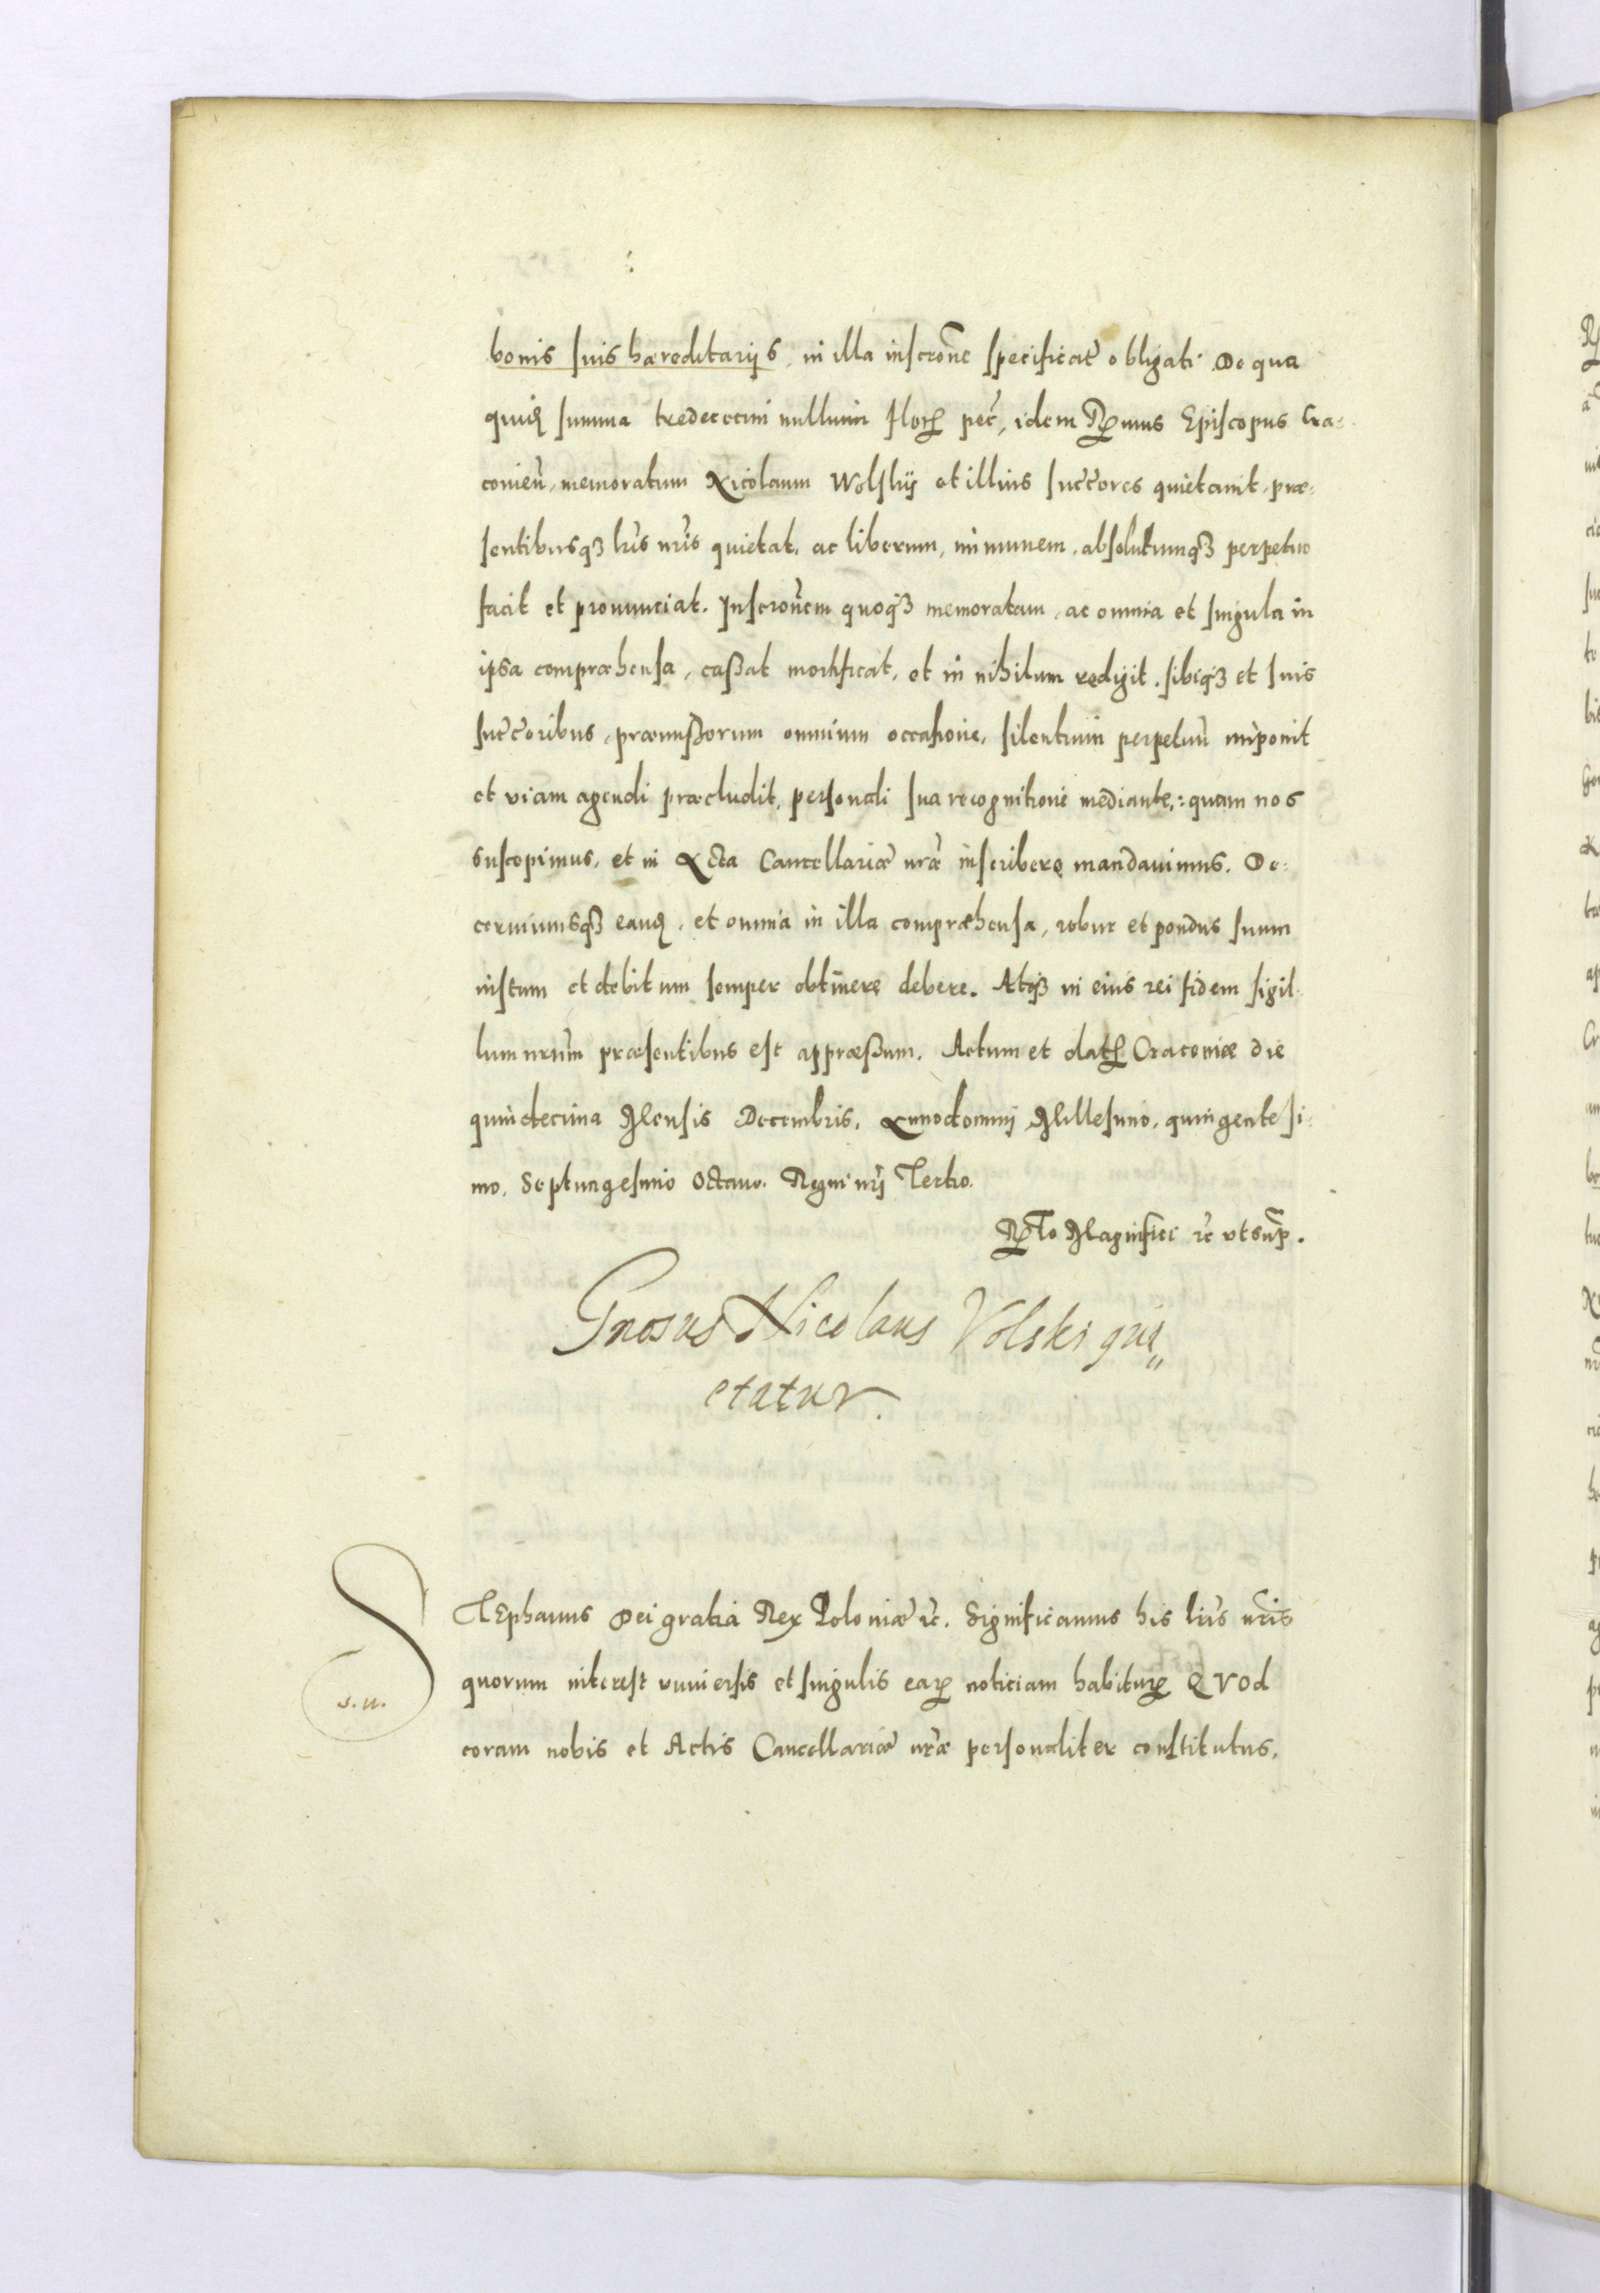 bonis suis hæreditarijs, in illa inscrone specificat obligati. De qua
quid summa tredecem millium floř pec, idem Rmus Episcopus Cra-
covien, memoratum Nicolaum Wolskij et illius succores quietavit, præ-
sentibusq3 lris nris quietat, ac liberum, immunem, absolutumq3 perpetuo
facit et pronunciat. Inscronem quoq3 memoratam, ac omnia et singula in
ipsa compræhensa, cassat mortificat, et in nihilum redigit, sibiq3 et suis
succoribus, præmissorum omnium occasione, silentium perpetuu imponit
et viam agendi præcludit, personali sua recognitione mediante: quam nos
suscepimus, et in Acta Cancellariæ nræ inscribere mandavimus. De-
cernimusq3 eand, et omnia in illa compræhensa, robur et pondus suum
iustum et debitum semper obtinere debere. Atq3 in eius rei fidem sigil-
lum nrum præsentibus est appræssum. Actum et dat Cracoviæ die
quindecima Mensis Decembris, Anno domini Millesimo, quingentesi-
mo, Septuagesimo Octavo. Regni nri Tertio.
Rlo Magnifici rc ut sup.
Gnosus Nicolaus Volski qui„
etatur.
STEphanus Dei gratia Rex Poloniæ rc. Significamus his lris nris
quorum interest universis et singulis ear noticiam habitur QVOd
coram nobis et Actis Cancellariæ nræ personaliter constitutus,